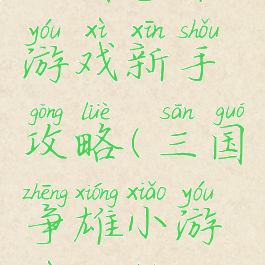 yóu xì xīn shǒu
游戏新手
gōng lüè sān guó
攻略(三国
zhēng xióng xiǎo yóu
争雄小游